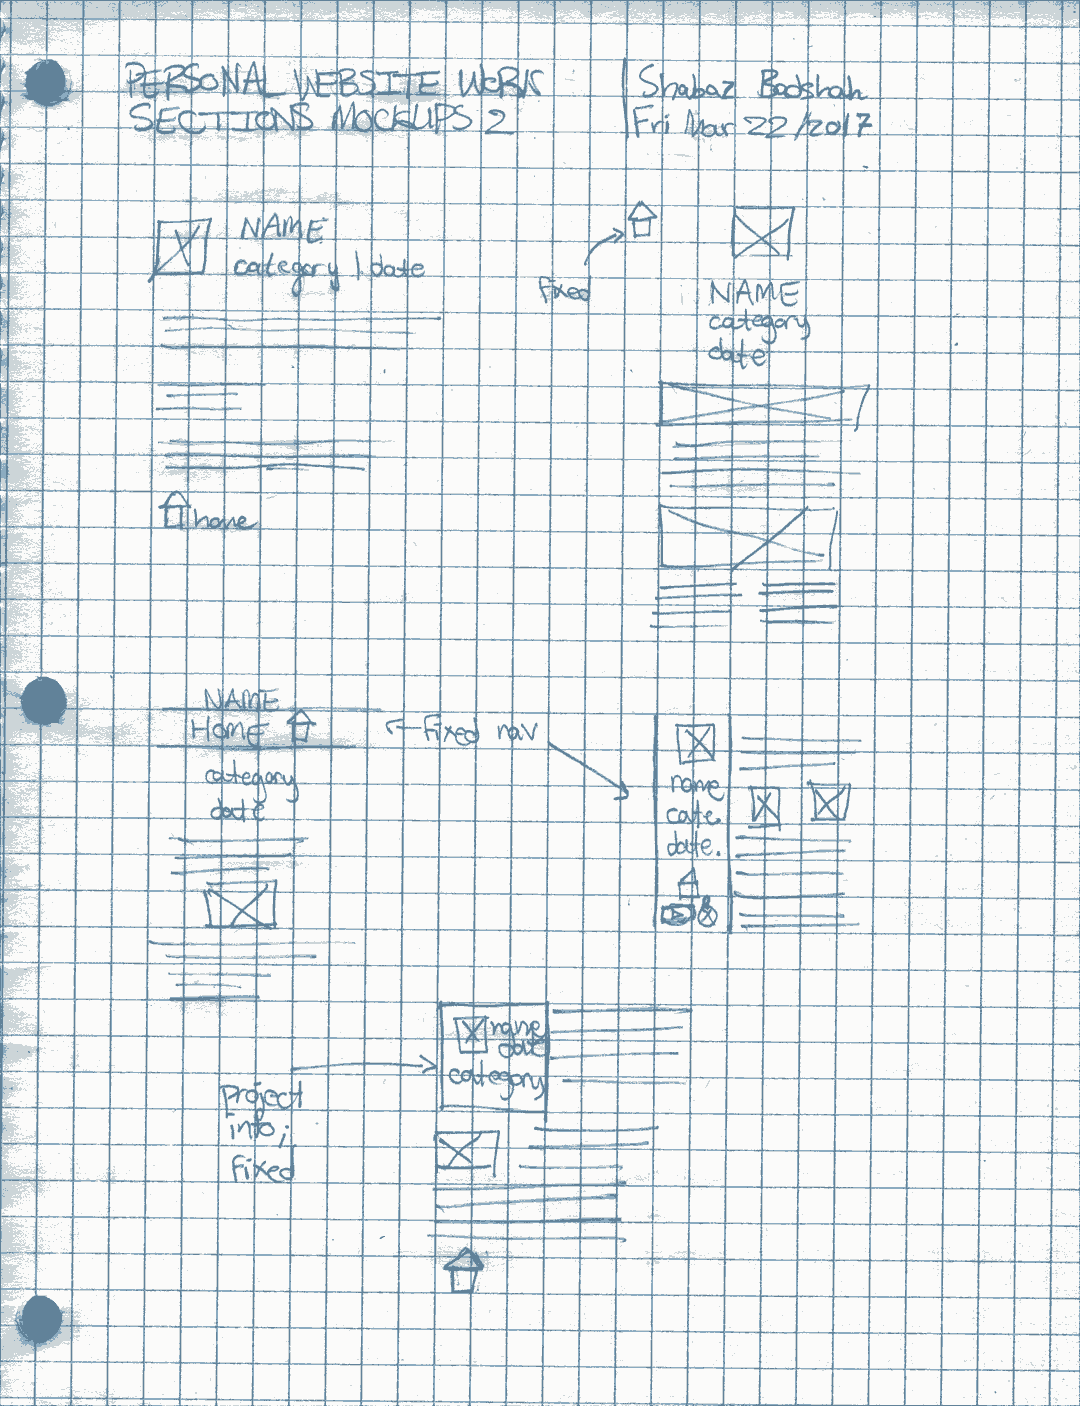 PERSONAL WEBSITE WORK
SECTIONS MOCKUPS 2
Shabaz Badshah
Fri Mar 22/2017
NAME
category | date
home
fixed
NAME
category
date
NAME
HOME
category
date
fixed nav
name
cate.
date.
project
info;
fixed
name
date
category